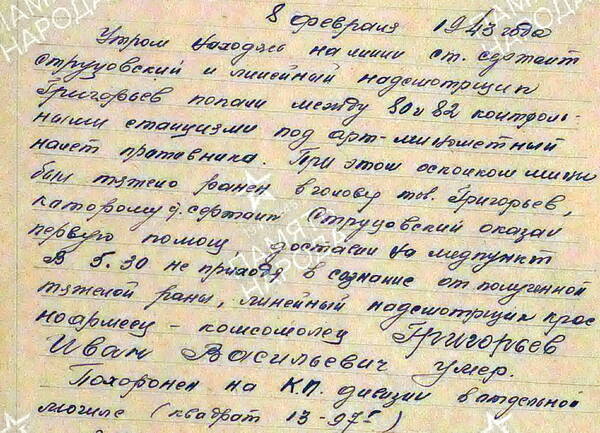 8 февраля 1943 года
Утром находясь на линии ст. сержант
Струцовский и линейный надсмотрщик
Григорьев попали между 80 и 82 контроль-
ными станциями под арт-минометный
налет противника. При этом осколком мины
был тяжело ранен в голову тов. Григорьев,
которому с. сержант Струцовский оказал
первую помощ доставил на медпункт
В 5.30 не приходя в сознание от полученной
тяжелой раны, линейный надсмотрщик крас
ноармеец - комсомолец Григорьев
Иван Васильевич умер.
Похоронен на К.П. дивизии в отдельной
могиле (квадрат 13-97
ПАМЯТЬ
НАРОДА